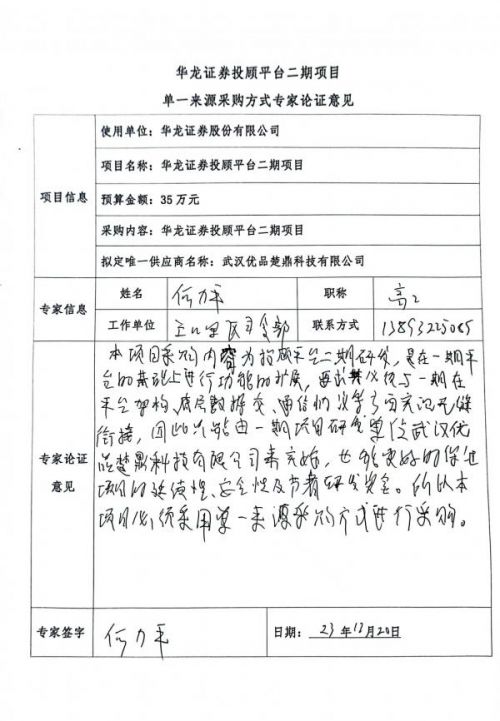 华龙证券投顾平台二期项目
单一来源采购方式专家论证意见
项目信息
使用单位：华龙证券股份有限公司
项目名称：华龙证券投顾平台二期项目
预算金额：35万元
采购内容：华龙证券投顾平台二期项目
拟定唯一供应商名称：武汉优品楚鼎科技有限公司
专家信息
姓名 何力平 职称 高工
工作单位 联系方式 13893225085
专家论证
意见
本项目采购内容为投顾平台二期研发，是在一期平
台的基础上进行功能的扩展，要求其必须与一期在
平台架构、底层数据库、通信协议等方面实现无缝
衔接，因此只能由一期项目研发单位武汉优
品楚鼎科技有限公司来完成，也能更好的保证
项目的延续性、安全性及节省研发资金。所以本
项目必须采用单一来源采购方式进行采购。
专家签字 何力平 日期：23年12月20日